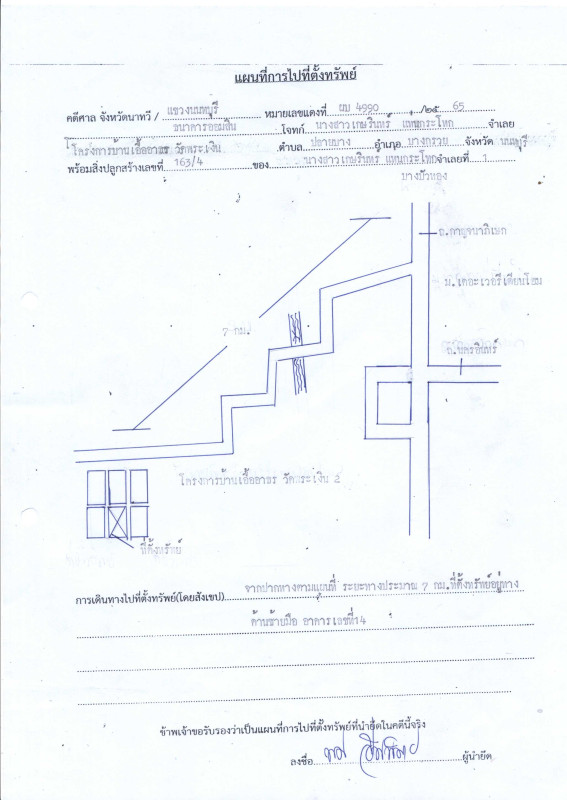 แผนที่การไปที่ตั้งทรัพย์
คดีศาล จังหวัดนาทวี / แขวงนนทบุรี หมายเลขแดงที่ ผบ 4990 /๒๕ 65
ธนาคารออมสิน โจทก์ นางสาวเกษรินทร์ แทนกระโทก จำเลย
โครงการบ้านเอื้ออาทร วัดพระเงิน ตำบล ปลายบาง อำเภอ บางกรวย จังหวัด นนทบุรี
พร้อมสิ่งปลูกสร้างเลขที่ 163/4 ของ นางสาวเกษรินทร์ แทนกระโทก จำเลยที่ 1
บางบัวทอง
ถ.กาญจนาภิเษก
ม.เดอะเวอรี่เดียนโฮม
7 กม.
ถ.นครอินทร์
โครงการบ้านเอื้ออาทร วัดพระเงิน 2
ที่ตั้งทรัพย์
การเดินทางไปที่ตั้งทรัพย์(โดยสังเขป) จากปากทางตามแผนที่ ระยะทางประมาณ 7 กม.ที่ตั้งทรัพย์อยู่ทาง
ด้านซ้ายมือ อาคารเลขที่14
ข้าพเจ้าขอรับรองว่าเป็นแผนที่การไปที่ตั้งทรัพย์ที่นำยึดในคดีนี้จริง
ลงชื่อ ผู้นำยึด